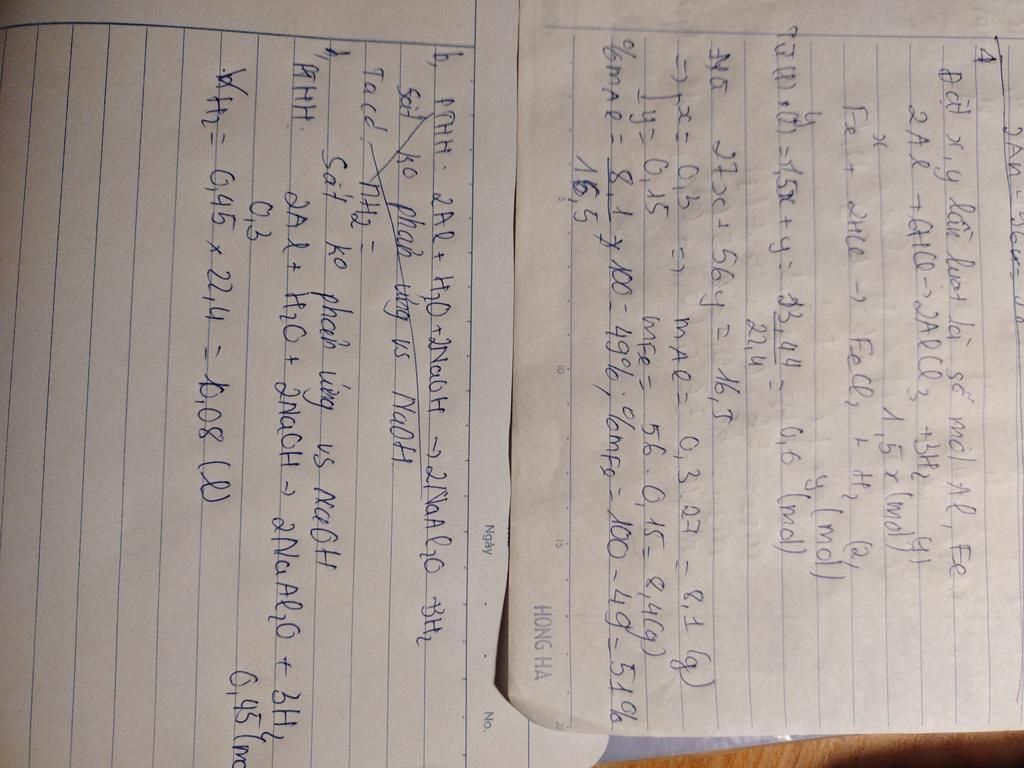 1
Đặt x, y lần lượt là số mol Al, Fe
2Al + 6HCl → 2AlCl3 + 3H2 (1)
x 1,5x (mol)
Fe + 2HCl → FeCl2 + H2 (2)
y y (mol)
Từ (1), (2) = 1,5x + y = 13,44/22,4 = 0,6 (mol)
Mà 27x + 56y = 16,5
=> x = 0,3 => mAl = 0,3.27 = 8,1 (g)
y = 0,15 mFe = 56.0,15 = 8,4(g)
%mAl = 8,1/16,5 x 100 = 49%; %mFe = 100 - 49 = 51%
HONG HA
Ngày
No.
b, PTHH: 2Al + H2O + 2NaOH → 2NaAl2O + 3H2
Sắt ko phản ứng vs NaOH
Ta có: nH2 =
b, Sắt ko phản ứng vs NaOH
PTHH: 2Al + H2O + 2NaOH → 2NaAl2O + 3H2
0,3 0,45 (mo
VH2 = 0,45 x 22,4 = 10,08 (l)